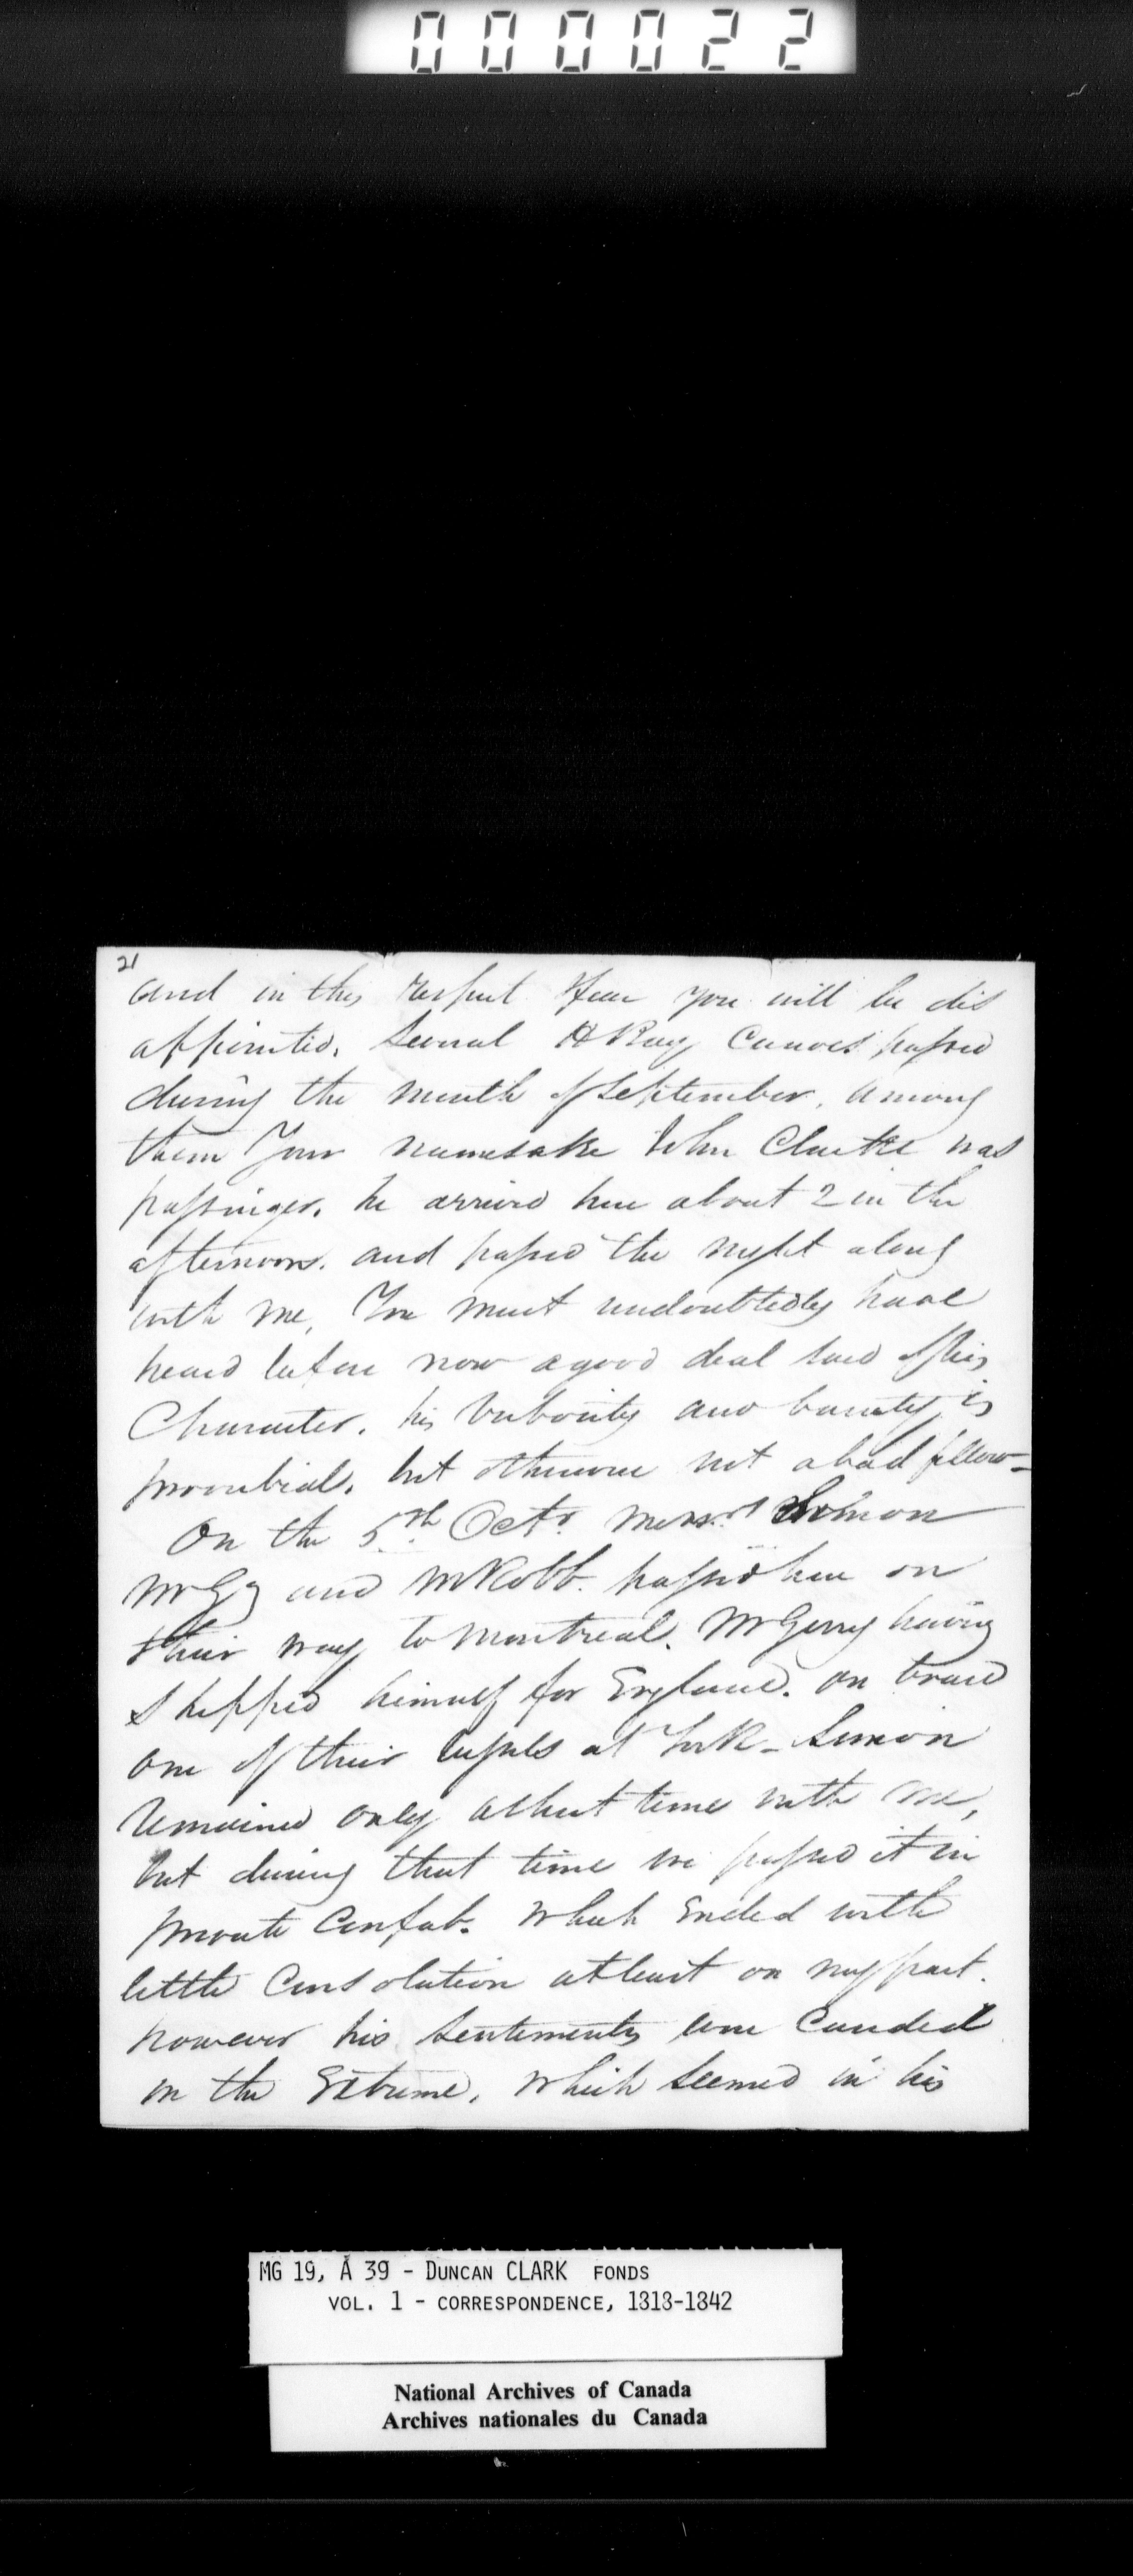 000022
21
and in this respect I fear you will be dis
appointed. Several H Bay Canoes passed
during the month of September, among
them Your namesake John Clarke was
passinger. he arrived here about 2 in the
afternoon. and passed the night along
with me, You must undoubtedly have
heard before now a good deal said of his
Character. his Verbosity and vanity is
proverbial. but otherwise not a bad fellow-
On the 5th Octr. Messrs Simon
McGy and McRobb. passed here on
their way to Montreal. McGerry having
shipped himself for England. on board
one of their vessels at York - Simon
remained only a short time with me,
but during that time we passed it in
private Confab. which Ended with
little Consolation at least on my part.
however his Sentiments were Candid
in the Extreme, which seemed in his
MG 19, A 39 - DUNCAN CLARK FONDS
VOL. 1 - CORRESPONDENCE, 1818-1842
National Archives of Canada
Archives nationales du Canada